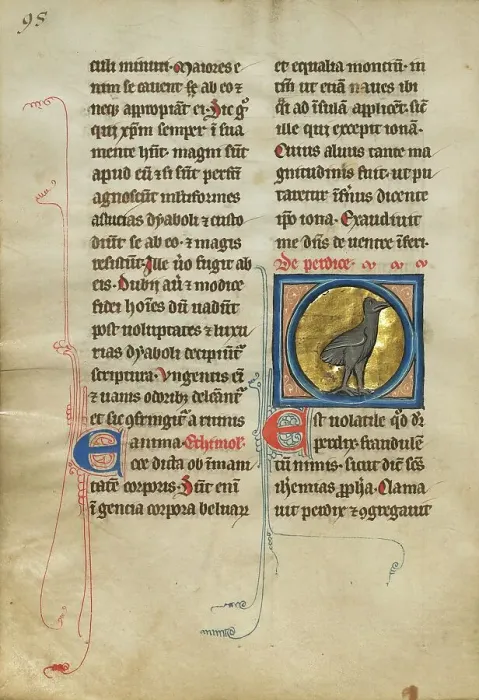 culi minuti. Maiores e
nim se cauent se ab eo ⁊
neqꝫ appropiãt ei. Sic gͦ
qui xp̃m semper ĩ sua
mente hñt. magni sũt
apud eũ ⁊ si sũt perfcĩ
agnoscũt multiformes
astucias dyaboli ⁊ custo
diũt se ab eo. ⁊ magis
resistũt. Ille ũo fugit ab
eis. Dubij aũt ⁊ modice
fidei hoĩes dũ uadũt
post uoluptates ⁊ luxu
rias dyaboli decipiũtͬ
scriptura. Vngentis eĩ
⁊ uariis odoribꝫ delcãntͬ
et sic ɔfringitͬ a ruinis
anima. Ethimol.
Cete dicta ob imani
tatẽ corporis. Sũt enĩ
ĩgencia corpora beluaꝝ
et equalia montiũ. in
tm̃ ut etiã naues ibi
q̃i ad ĩsulã applicẽt. sic̃
ille qui excepit ionã.
Cuius aluus tante ma
gnitudinis fuit. ut pu
taretur ĩfnus dicente
ip̃o iona. Exaudiuit
me dñs de uentre ĩferi.
De perdice.
Est uolatile qd̾ dr̃
perdix. fraudulẽ
tũ nimis. sicut dic̃ scs̃
iheremias ꝓpħa. Clama
uit perdix ⁊ ɔgregauit